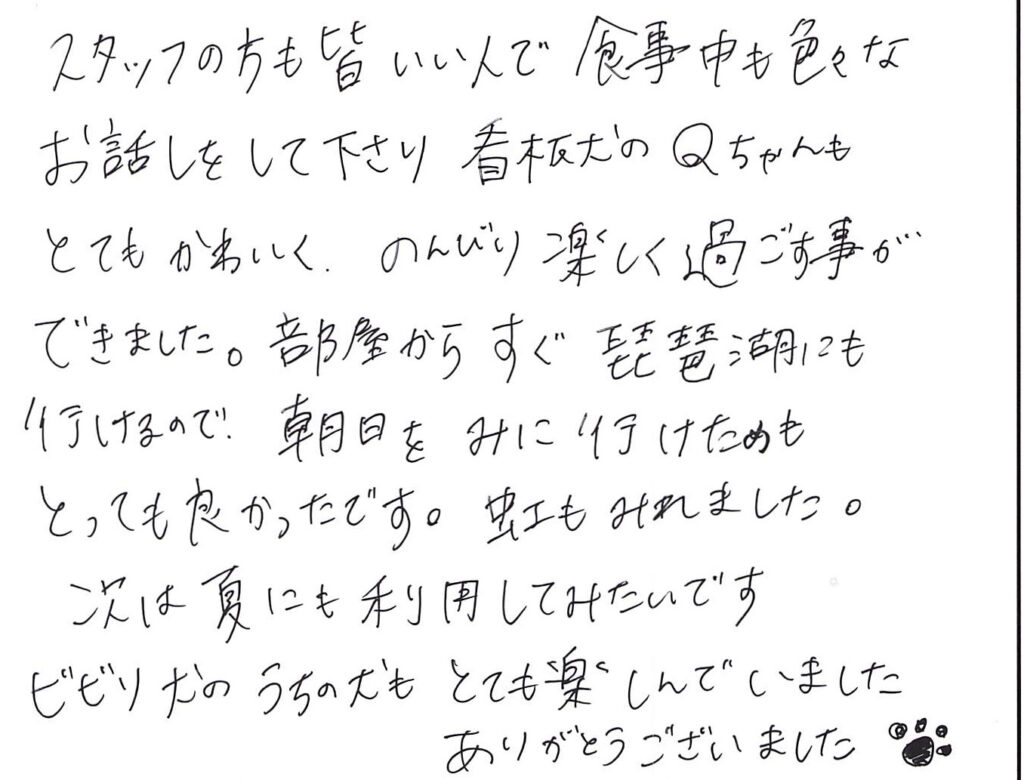 スタッフの方も皆いい人で 食事中も色々な
お話しをして下さり 看板犬のQちゃんも
とてもかわいく. のんびり楽しく過ごす事が
できました。部屋からすぐ琵琶湖にも
行けるので. 朝日をみに行けたのも
とっても良かったです。虹もみれました。
次は夏にも利用してみたいです
ビビリ犬のうちの犬もとても楽しんでいました
ありがとうございました